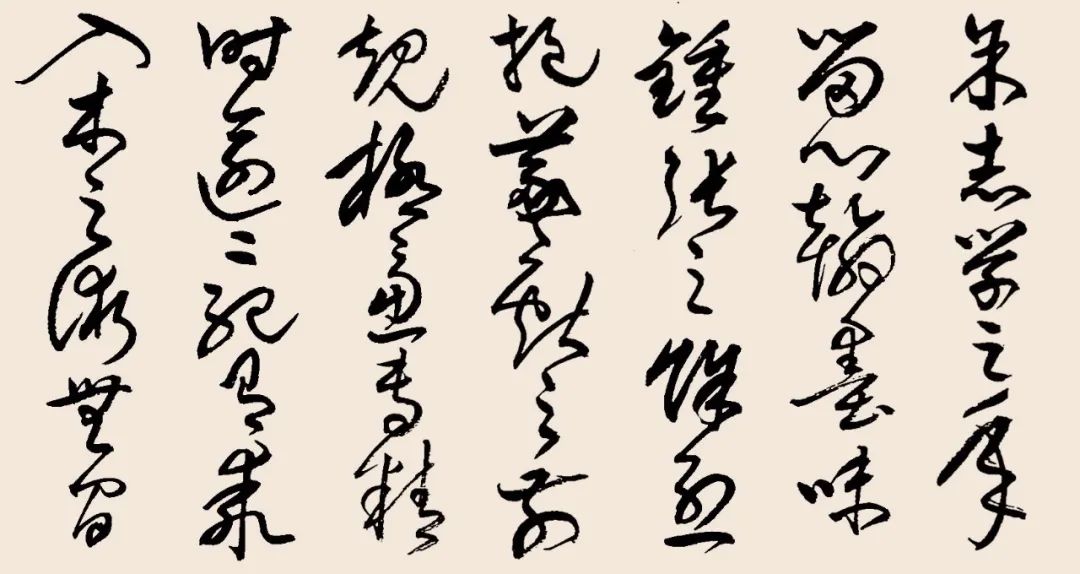 余志學之年
留心翰墨味
鍾張之餘烈
挹羲獻之前
規極慮專精
時逾二紀有乖
入木之術無間